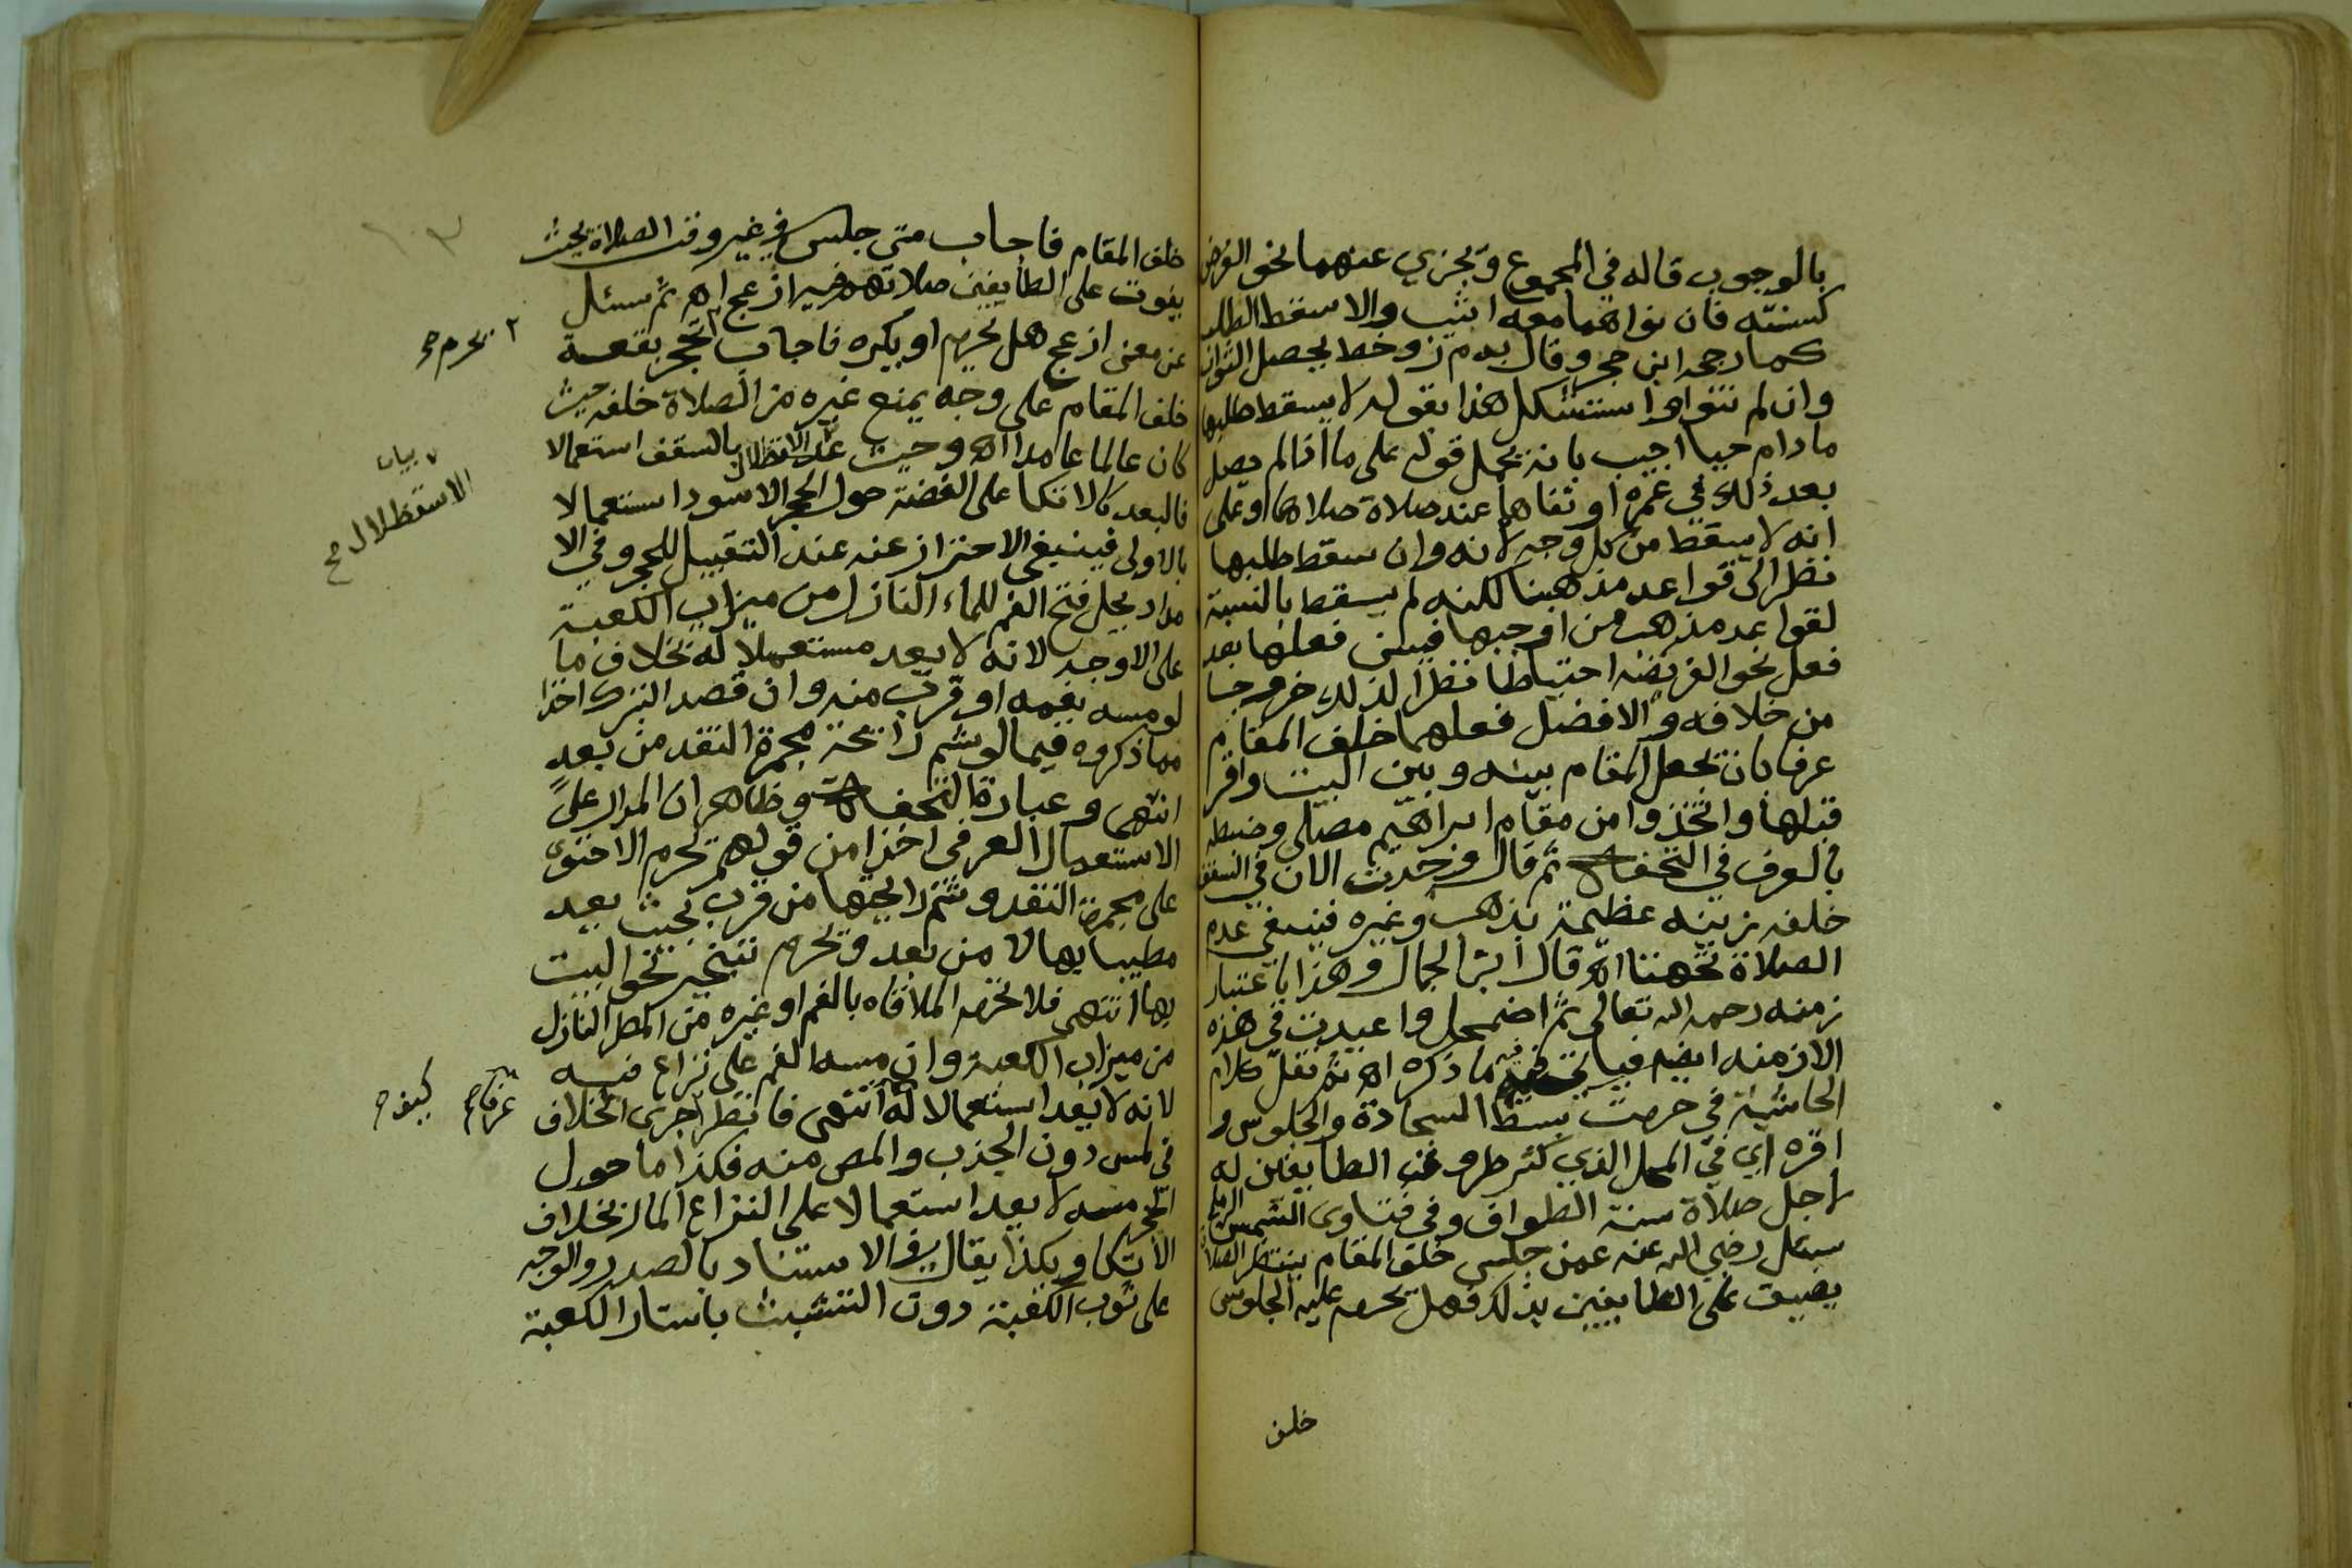 بالوجوب قاله في المجموع ويجزي عنهما نحو الفرض
كسنته فان نواهما معه اثيب والا سقط الطلب
كما رجحه ابن حجر وقال يحصل الثواب
وان لم تنو واستشكل هذا بقوله لا يسقط طلبها
ما دام حيا اجيب بانه يحمل قوله على ما اذا لم يصل
بعد ذلك في عمره او نفاها عند صلاة صلاها او على
انه لا يسقط من كل وجه لانه وان سقط طلبها
نظرا الى قواعد مذهبنا لكنه لم يسقط بالنسبة
لقواعد مذهب من اوجبها فيسن فعلها بعد
فعل نحو الفريضة احتياطا نظرا لذلك خروجا
من خلافه والافضل فعلهما خلف المقام
عرفا بان يجعل المقام بينه وبين البيت واقرا
قبلها واتخذوا من مقام ابراهيم مصلى وضبطه
بالعرف في التحفة ثم قال وحدث الان في السقف
خلفه زينة عظيمة بذهب وغيره فينبغي عدم
الصلاة تحتها اه قال ابن الجمال وهذا باعتبار
زمنه رحمه الله تعالى ثم اضمحل واعيدت في هذه
الازمنة ايضا فياتي فيه ما ذكره اه ثم نقل كلام
الحاشية في حرمة بسط السجادة والجلوس و
اقره اي في المحل الذي كثر طروق الطايفين له
لاجل صلاة سنة الطواف وفي فتاوى الشمس الرملي
سئل رضي الله عنه عمن جلس خلف المقام ينتظر الصلاة
يضيق على الطايفين بذلك فهل يحرم عليه الجلوس
خلف
خلف المقام فاجاب متى جلس في غير وقت الصلاة بحيث
يفوت على الطايفين صلاتهم ازعج اه ثم سئل
عن معنى ازعج هل يحرم او يكره فاجاب بقعة
خلف المقام على وجه يمنع غيره من الصلاة خلفه حيث
كان عالما عامدا اه وحيث عد الاستظلال بالسقف استعمالا
فالبعد كالاتكا على الفضة حول الحجر الاسود استعمالا
بالاولى فينبغي الاحتراز عنه عند التقبيل للحجر وفي الا
مداد يحل فتح الفم للماء النازل من ميزاب الكعبة
على الاوجه لانه لا يعد مستعملا له بخلاف ما
لو مسه بفمه او قرب منه وان قصد التبرك اخذا
مما ذكروه فيما لو شم رائحة مجمرة النقد من بعد
انتهى وعبارة التحفة وظاهر ان المدار على
الاستعمال العرفي اخذا من قولهم يحرم الاحتوى
على مجمرة النقد وشم رايحتها من قرب بحيث يعد
مطيبا بها لا من بعد ويحرم تبخير نحو البيت
بها انتهى فلا تحرم الملاقاه بالفم او غيره من المطر النازل
من ميزاب الكعبة وان مسه الفم على نزاع فيه
لانه لا يعد استعمالا له انتهى فانظر اجرى الخلاف
في لمس دون الجذب والمص منه فكذا ما حول
الحجر مسه لا يعد استعمالا على النزاع المار بخلاف
الاتكا وبكذا يقال في الاستناد بالصدر والوجه
على ثوب الكعبة دون التشبث باستار الكعبة
١٠٣
٢ يحرم
بيان
الاستظلال
عرفا